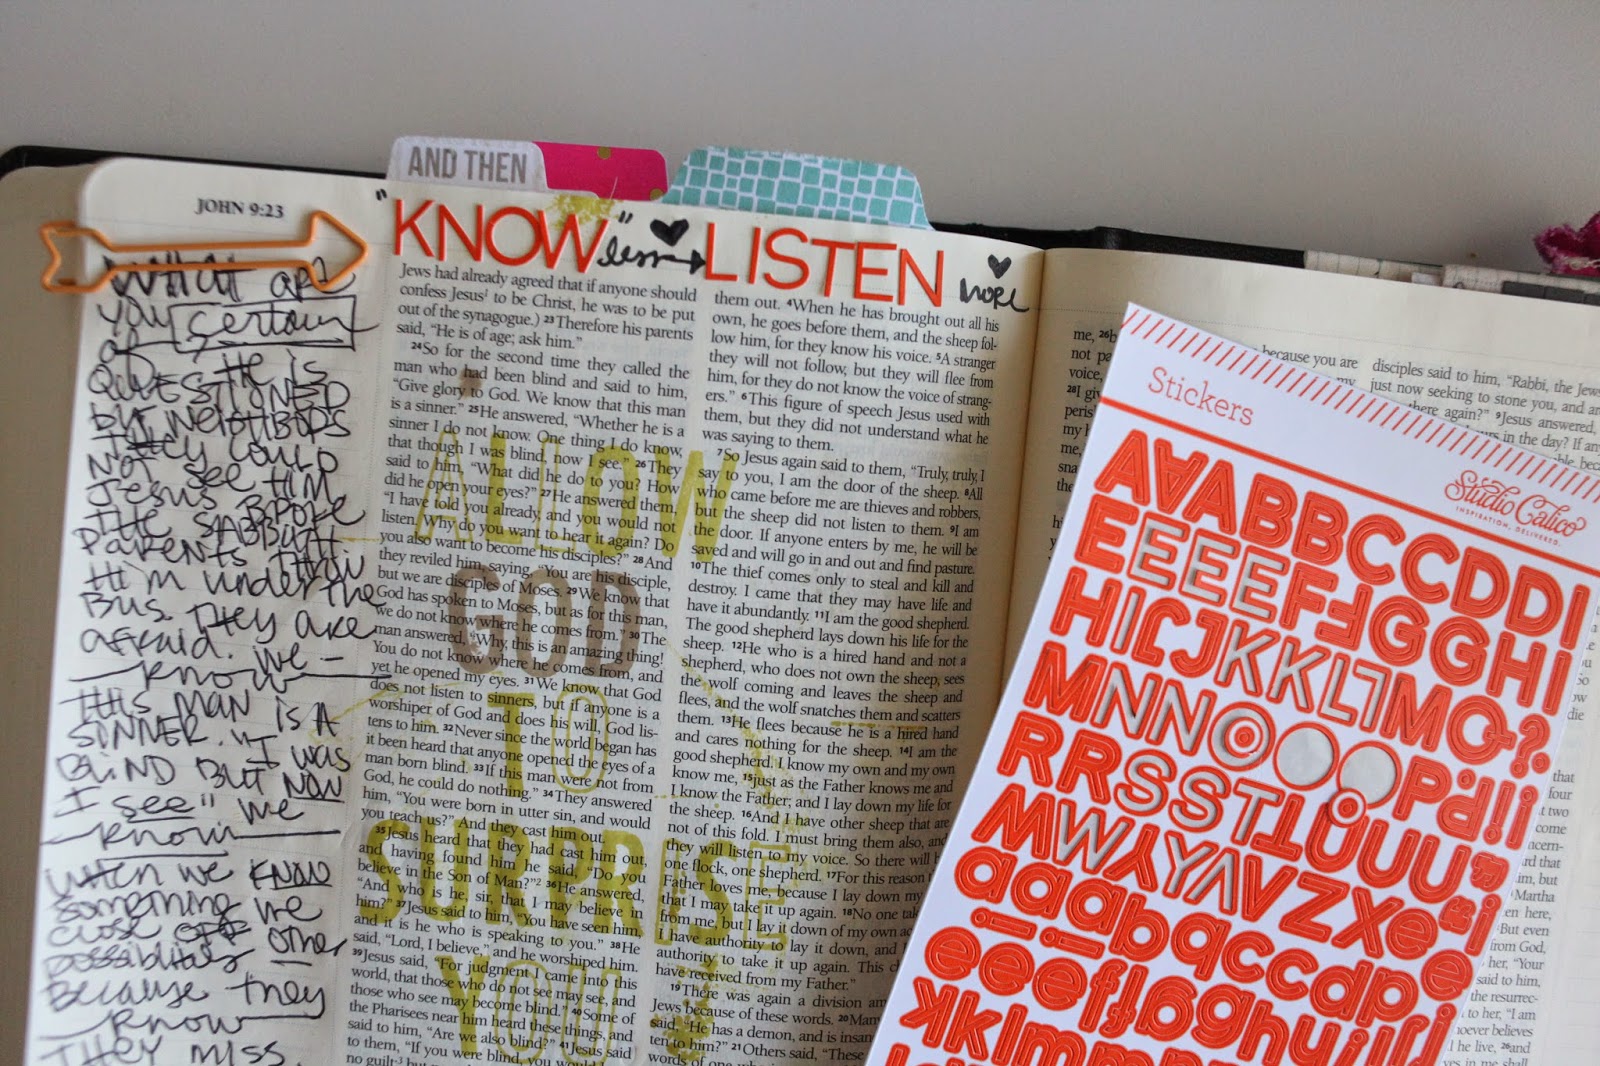 AND THEN
JOHN 9:23
"KNOW" less LISTEN more
What are
you certain
of? He is
QUESTIONED
by NEIGHBORS
They could
Not see Him
Jesus BROKE
THE SABBATH
Parents throw
Him under the
Bus. They are
afraid. we –
know
THIS MAN IS A
SINNER. "I was
BLIND BUT NOW
I see" we
know
when we KNOW
something we
close off other
possibilities
because they
know
THEY MISS
Jews had already agreed that if anyone should
confess Jesus¹ to be Christ, he was to be put
out of the synagogue.) 23 Therefore his parents
said, "He is of age; ask him."
24 So for the second time they called the
man who had been blind and said to him,
"Give glory to God. We know that this man
is a sinner." 25 He answered, "Whether he is a
sinner I do not know. One thing I do know,
that though I was blind, now I see." 26 They
said to him, "What did he do to you? How
did he open your eyes?" 27 He answered them,
"I have told you already, and you would not
listen. Why do you want to hear it again? Do
you also want to become his disciples?" 28 And
they reviled him, saying, "You are his disciple,
but we are disciples of Moses. 29 We know that
God has spoken to Moses, but as for this man,
we do not know where he comes from." 30 The
man answered, "Why, this is an amazing thing!
You do not know where he comes from, and
yet he opened my eyes. 31 We know that God
does not listen to sinners, but if anyone is a
worshiper of God and does his will, God lis-
tens to him. 32 Never since the world began has
it been heard that anyone opened the eyes of a
man born blind. 33 If this man were not from
God, he could do nothing." 34 They answered
him, "You were born in utter sin, and would
you teach us?" And they cast him out.
35 Jesus heard that they had cast him out,
and having found him he said, "Do you
believe in the Son of Man?"² 36 He answered,
"And who is he, sir, that I may believe in
him?" 37 Jesus said to him, "You have seen him,
and it is he who is speaking to you." 38 He
said, "Lord, I believe," and he worshiped him.
39 Jesus said, "For judgment I came into this
world, that those who do not see may see, and
those who see may become blind." 40 Some of
the Pharisees near him heard these things, and
said to him, "Are we also blind?" 41 Jesus said
to them, "If you were blind, you would have
no guilt;³ but
ALLOW
GOD
TO
SURPRISE
YOU!
them out. 4 When he has brought out all his
own, he goes before them, and the sheep fol-
low him, for they know his voice. 5 A stranger
they will not follow, but they will flee from
him, for they do not know the voice of strang-
ers." 6 This figure of speech Jesus used with
them, but they did not understand what he
was saying to them.
7 So Jesus again said to them, "Truly, truly, I
say to you, I am the door of the sheep. 8 All
who came before me are thieves and robbers,
but the sheep did not listen to them. 9 I am
the door. If anyone enters by me, he will be
saved and will go in and out and find pasture.
10 The thief comes only to steal and kill and
destroy. I came that they may have life and
have it abundantly. 11 I am the good shepherd.
The good shepherd lays down his life for the
sheep. 12 He who is a hired hand and not a
shepherd, who does not own the sheep, sees
the wolf coming and leaves the sheep and
flees, and the wolf snatches them and scatters
them. 13 He flees because he is a hired hand
and cares nothing for the sheep. 14 I am the
good shepherd. I know my own and my own
know me, 15 just as the Father knows me and
I know the Father; and I lay down my life for
the sheep. 16 And I have other sheep that are
not of this fold. I must bring them also, and
they will listen to my voice. So there will b
one flock, one shepherd. 17 For this reason t
Father loves me, because I lay down my l
that I may take it up again. 18 No one tak
from me, but I lay it down of my own ac
I have authority to lay it down, and I
authority to take it up again. This c
have received from my Father."
19 There was again a division am
Jews because of these words. 20 Man
said, "He has a demon, and is insan
ten to him?" 21 Others said, "These
words of one who
because you are
disciples said to him, "Rabbi, the Jew
just now seeking to stone you, and ar
there again?" 9 Jesus answered,
hours in the day? If any
Stickers
Studio Calico
INSPIRATION, DELIVERED.
AAABBCCDDI
EEEEFFGGHI
HIJJKKLLMQ&?
MNNOOOOPd!!i
RRSSSTTUUU
MWYYVVZXe